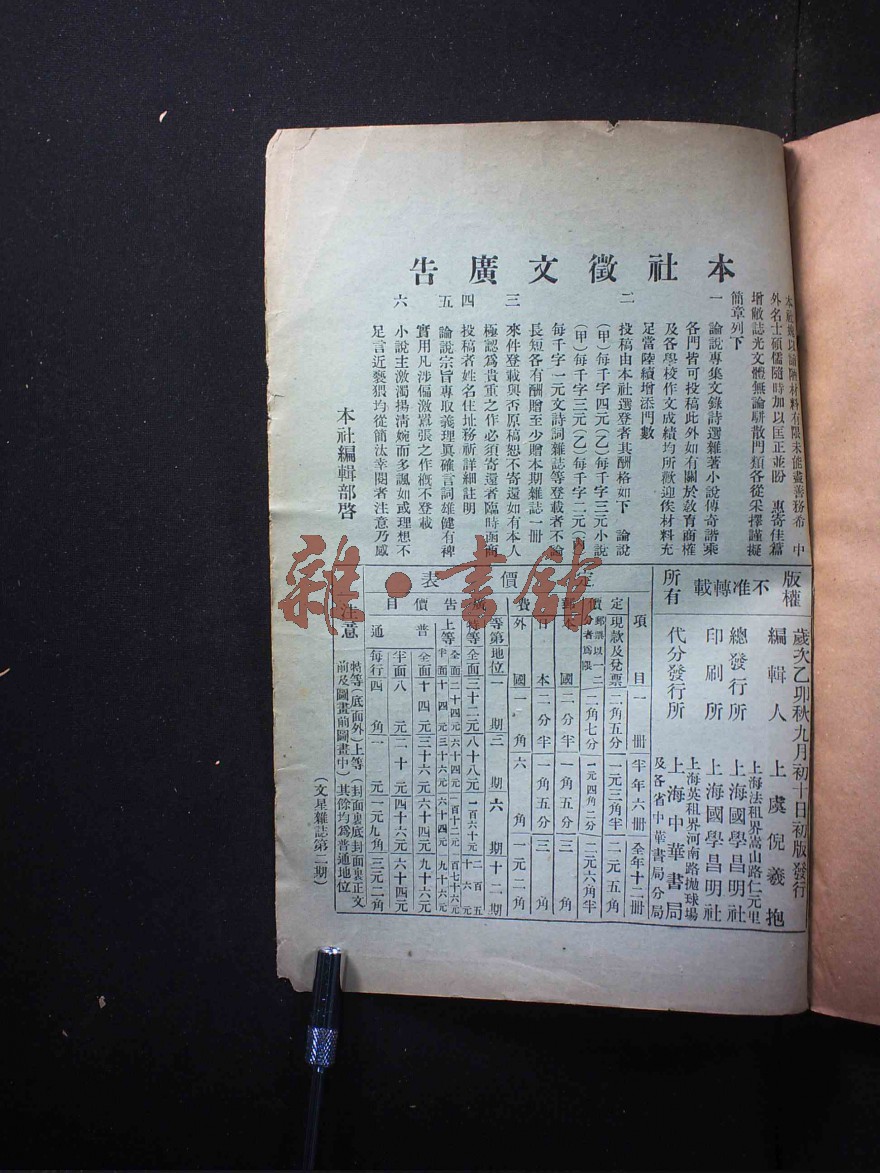 本社徵文廣告
本社
材料有限未能盡善務希 中
外名士碩儒隨時加以匡正並盼 惠寄佳篇
增敝誌光文體無論駢散門類各從采擇謹擬
簡章列下
一 論說專集文錄詩選雜著小說傳奇諧乘
各門皆可投稿此外如有關於教育商榷
及各學校作文成績均所歡迎俟材料充
足當陸續增添門數
二 投稿由本社選登者其酬格如下 論說
(甲)每千字四元(乙)每千字三元小說
(甲)每千字三元(乙)每千字二元(丙)
每千字一元文詩詞雜誌等登載者不論
長短各有酬贈至少贈本期雜誌一冊
三 來件登載與否原稿恕不寄還如有本人
極認爲貴重之作必須寄還者臨時函商
四 投稿者姓名住址務祈詳細註明
五 論說宗旨專取義理眞確言詞雄健有裨
實用凡涉偏激囂張之作槪不登載
六 小說主激濁揚淸婉而多諷如或理想不
足言近褻猥均從簡汰幸閱者注意乃感
本社編輯部啓
版權所有
不准轉載
歲次乙卯秋九月初十日初版發行
編輯人 上虞倪羲抱
上海法租界嵩山路仁元里
總發行所 上海國學昌明社
印刷所 上海國學昌明社
上海英租界河南路拋球場
代分發行所 上海中華書局
及各省中華書局分局
定價表
項目 一冊 半年六冊 全年十二冊
定價 現款及兌票 二角五分 一元三角半 二元五角
郵票以一二分者爲限 二角七分 一元四角二分 二元六角半
郵費 本國 二分半 一角五分 三角
日本 二分半 一角五分 三角
外國 一角 六角 一元二角
廣告價目
等第 地位 一期 三期 六期 十二期
特等 全面 三十二元 八十八元 一百六十元 二百五十六元
上等 全面 二十四元 六十四元 一百十二元 百七十六元
半面 十四元 三十六元 六十四元 九十六元
普通 全面 十四元 三十六元 六十四元 九十六元
半面 八元 二十元 四十六元 六十四元
每行 四角 一元 一元九角 三元二角
注意
特等(底面外)上等(封面裏底封面裏正文
前及圖畫前圖畫中)其餘均爲普通地位
(文星雜誌第二期)
雜·書館